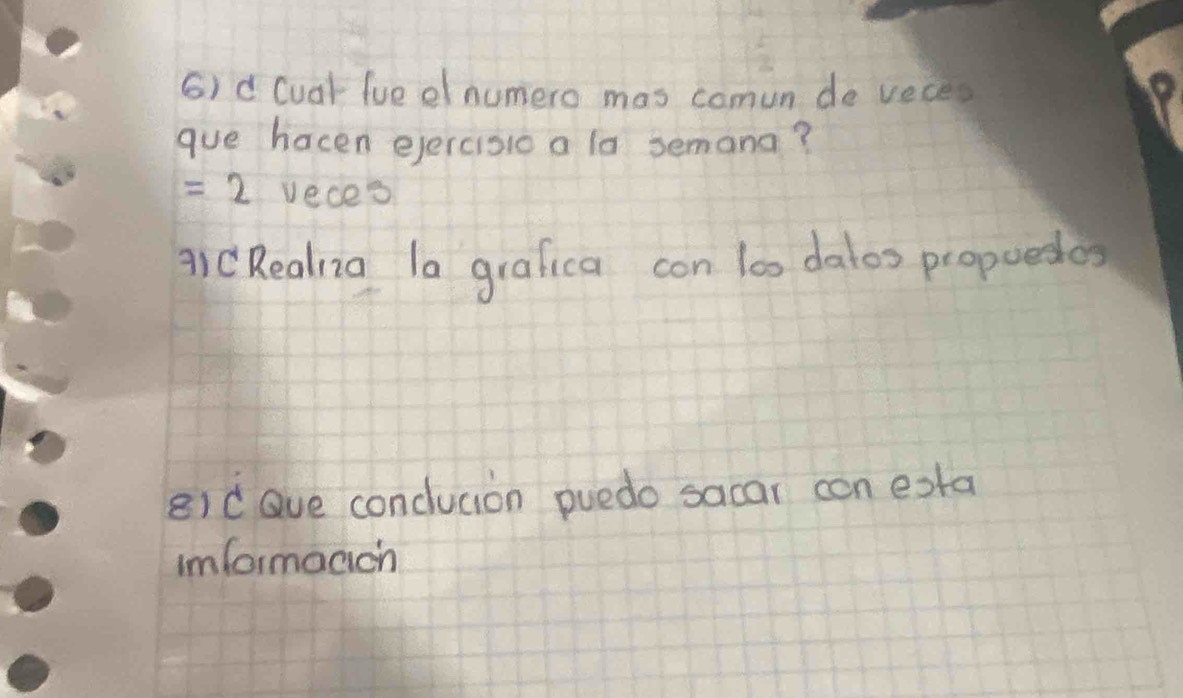 6) ¿Cual fue el numero mas comun de veces
que hacen ejercisio a la semana?
= 2 veces
7) ¿Realiza la grafica con los datos propuestos
8) ¿Que conclución puedo sacar con esta
imformación